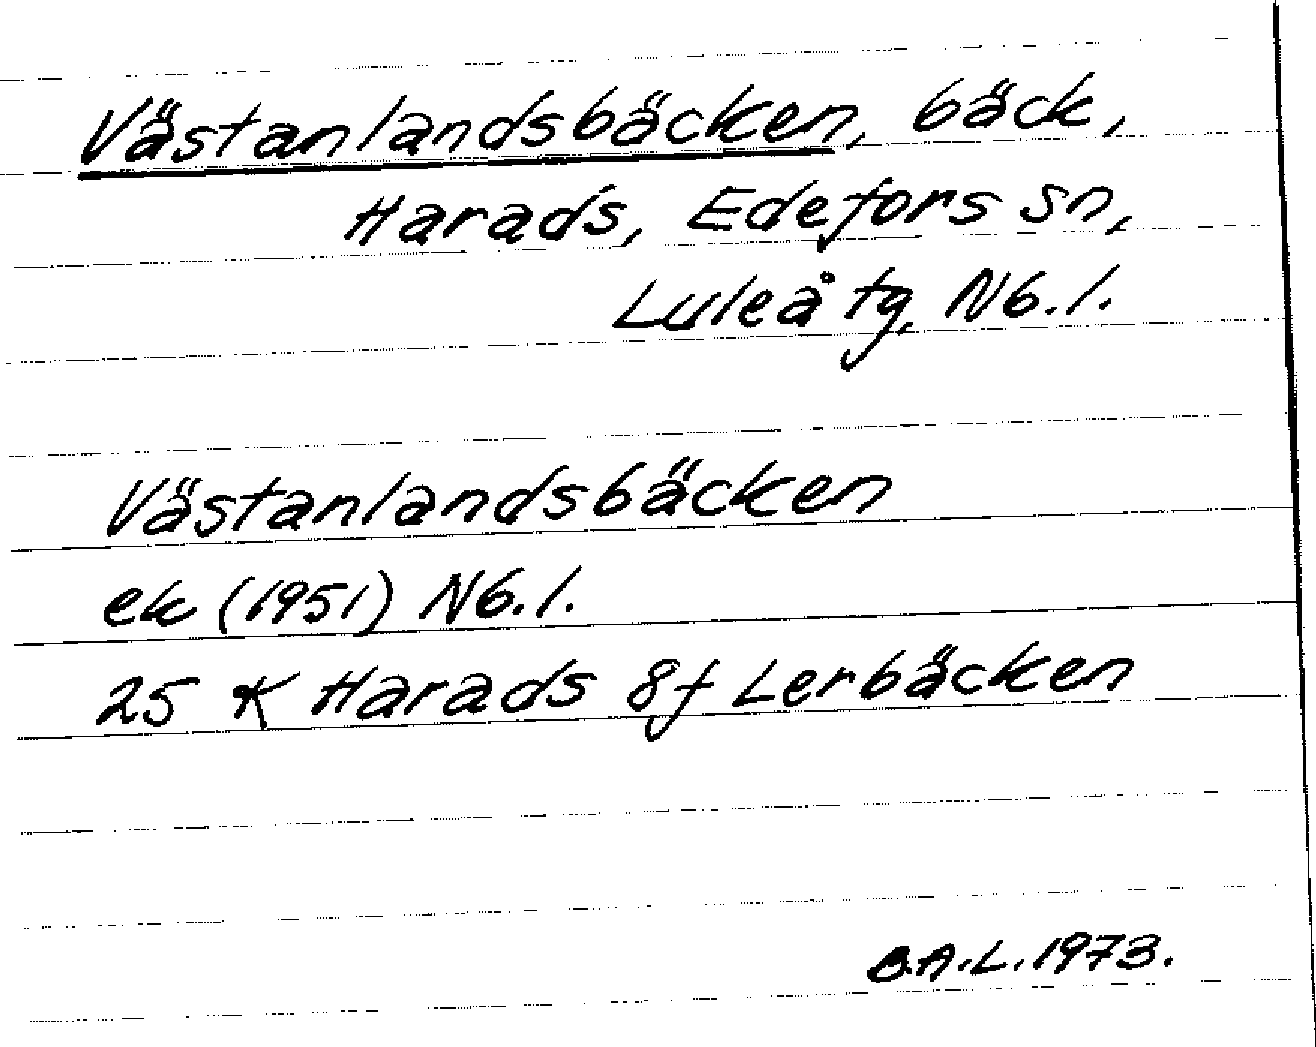 Västanlandsbäcken, bäck,
Harads, Edefors sn,
Luleå tg, Nb.l.
Västanlandsbäcken
ek (1951) Nb.l.
25 K Harads 8f Lerbäcken
B.A.L. 1973.